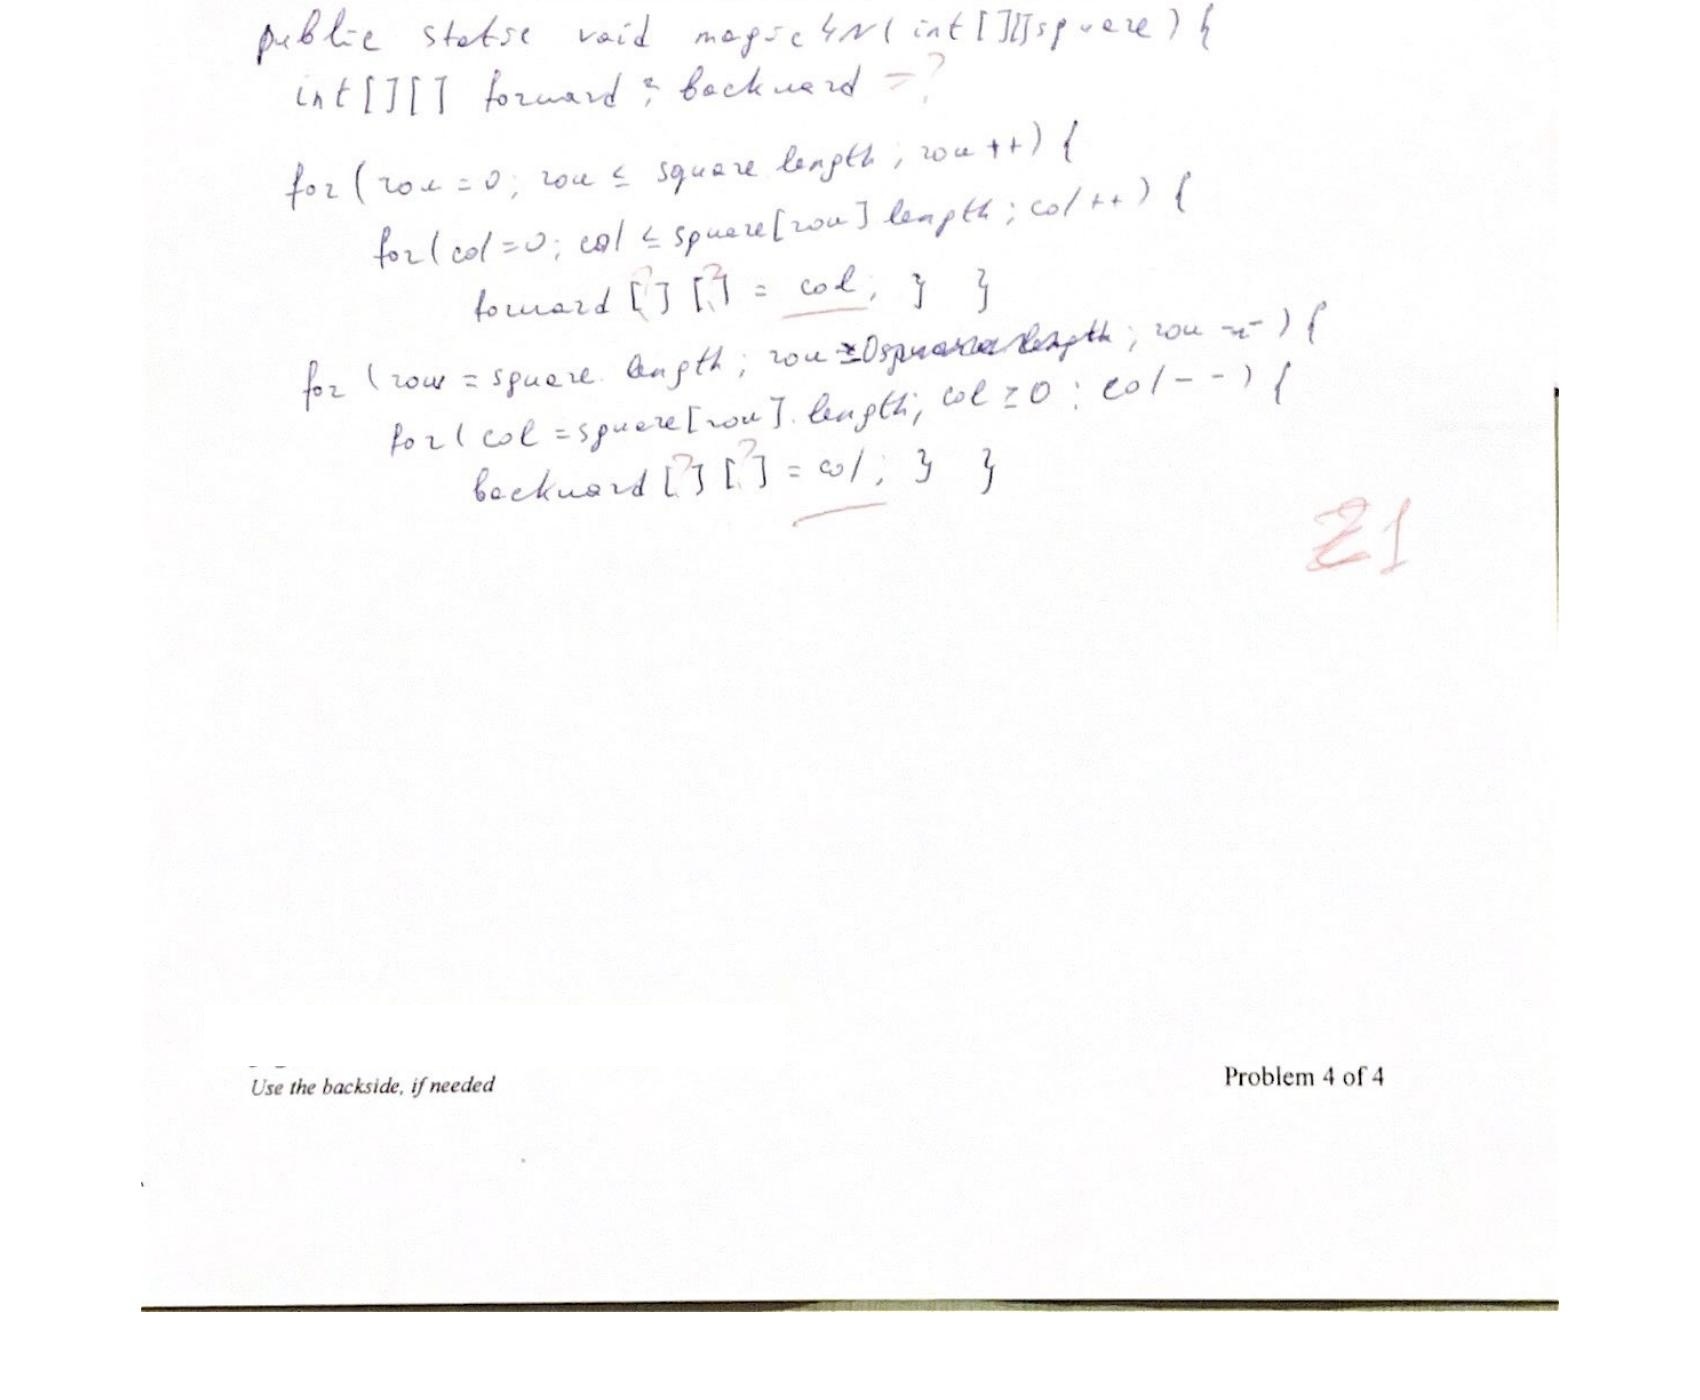 public static void magic4N(int[][]square) {
int[][] forward ; backward = ?
for (row = 0; row ≤ square length ; row ++) {
for( col = 0; col ≤ square[row] length ; col ++ ) {
forward [?] [?] = col ; } }
for ( row = square. length ; row ≥ 0 ; row -- ) {
for( col = square[row]. length ; col ≥ 0 ; col - - ) {
backward [?] [?] = col ; } }
21
Use the backside, if needed
Problem 4 of 4